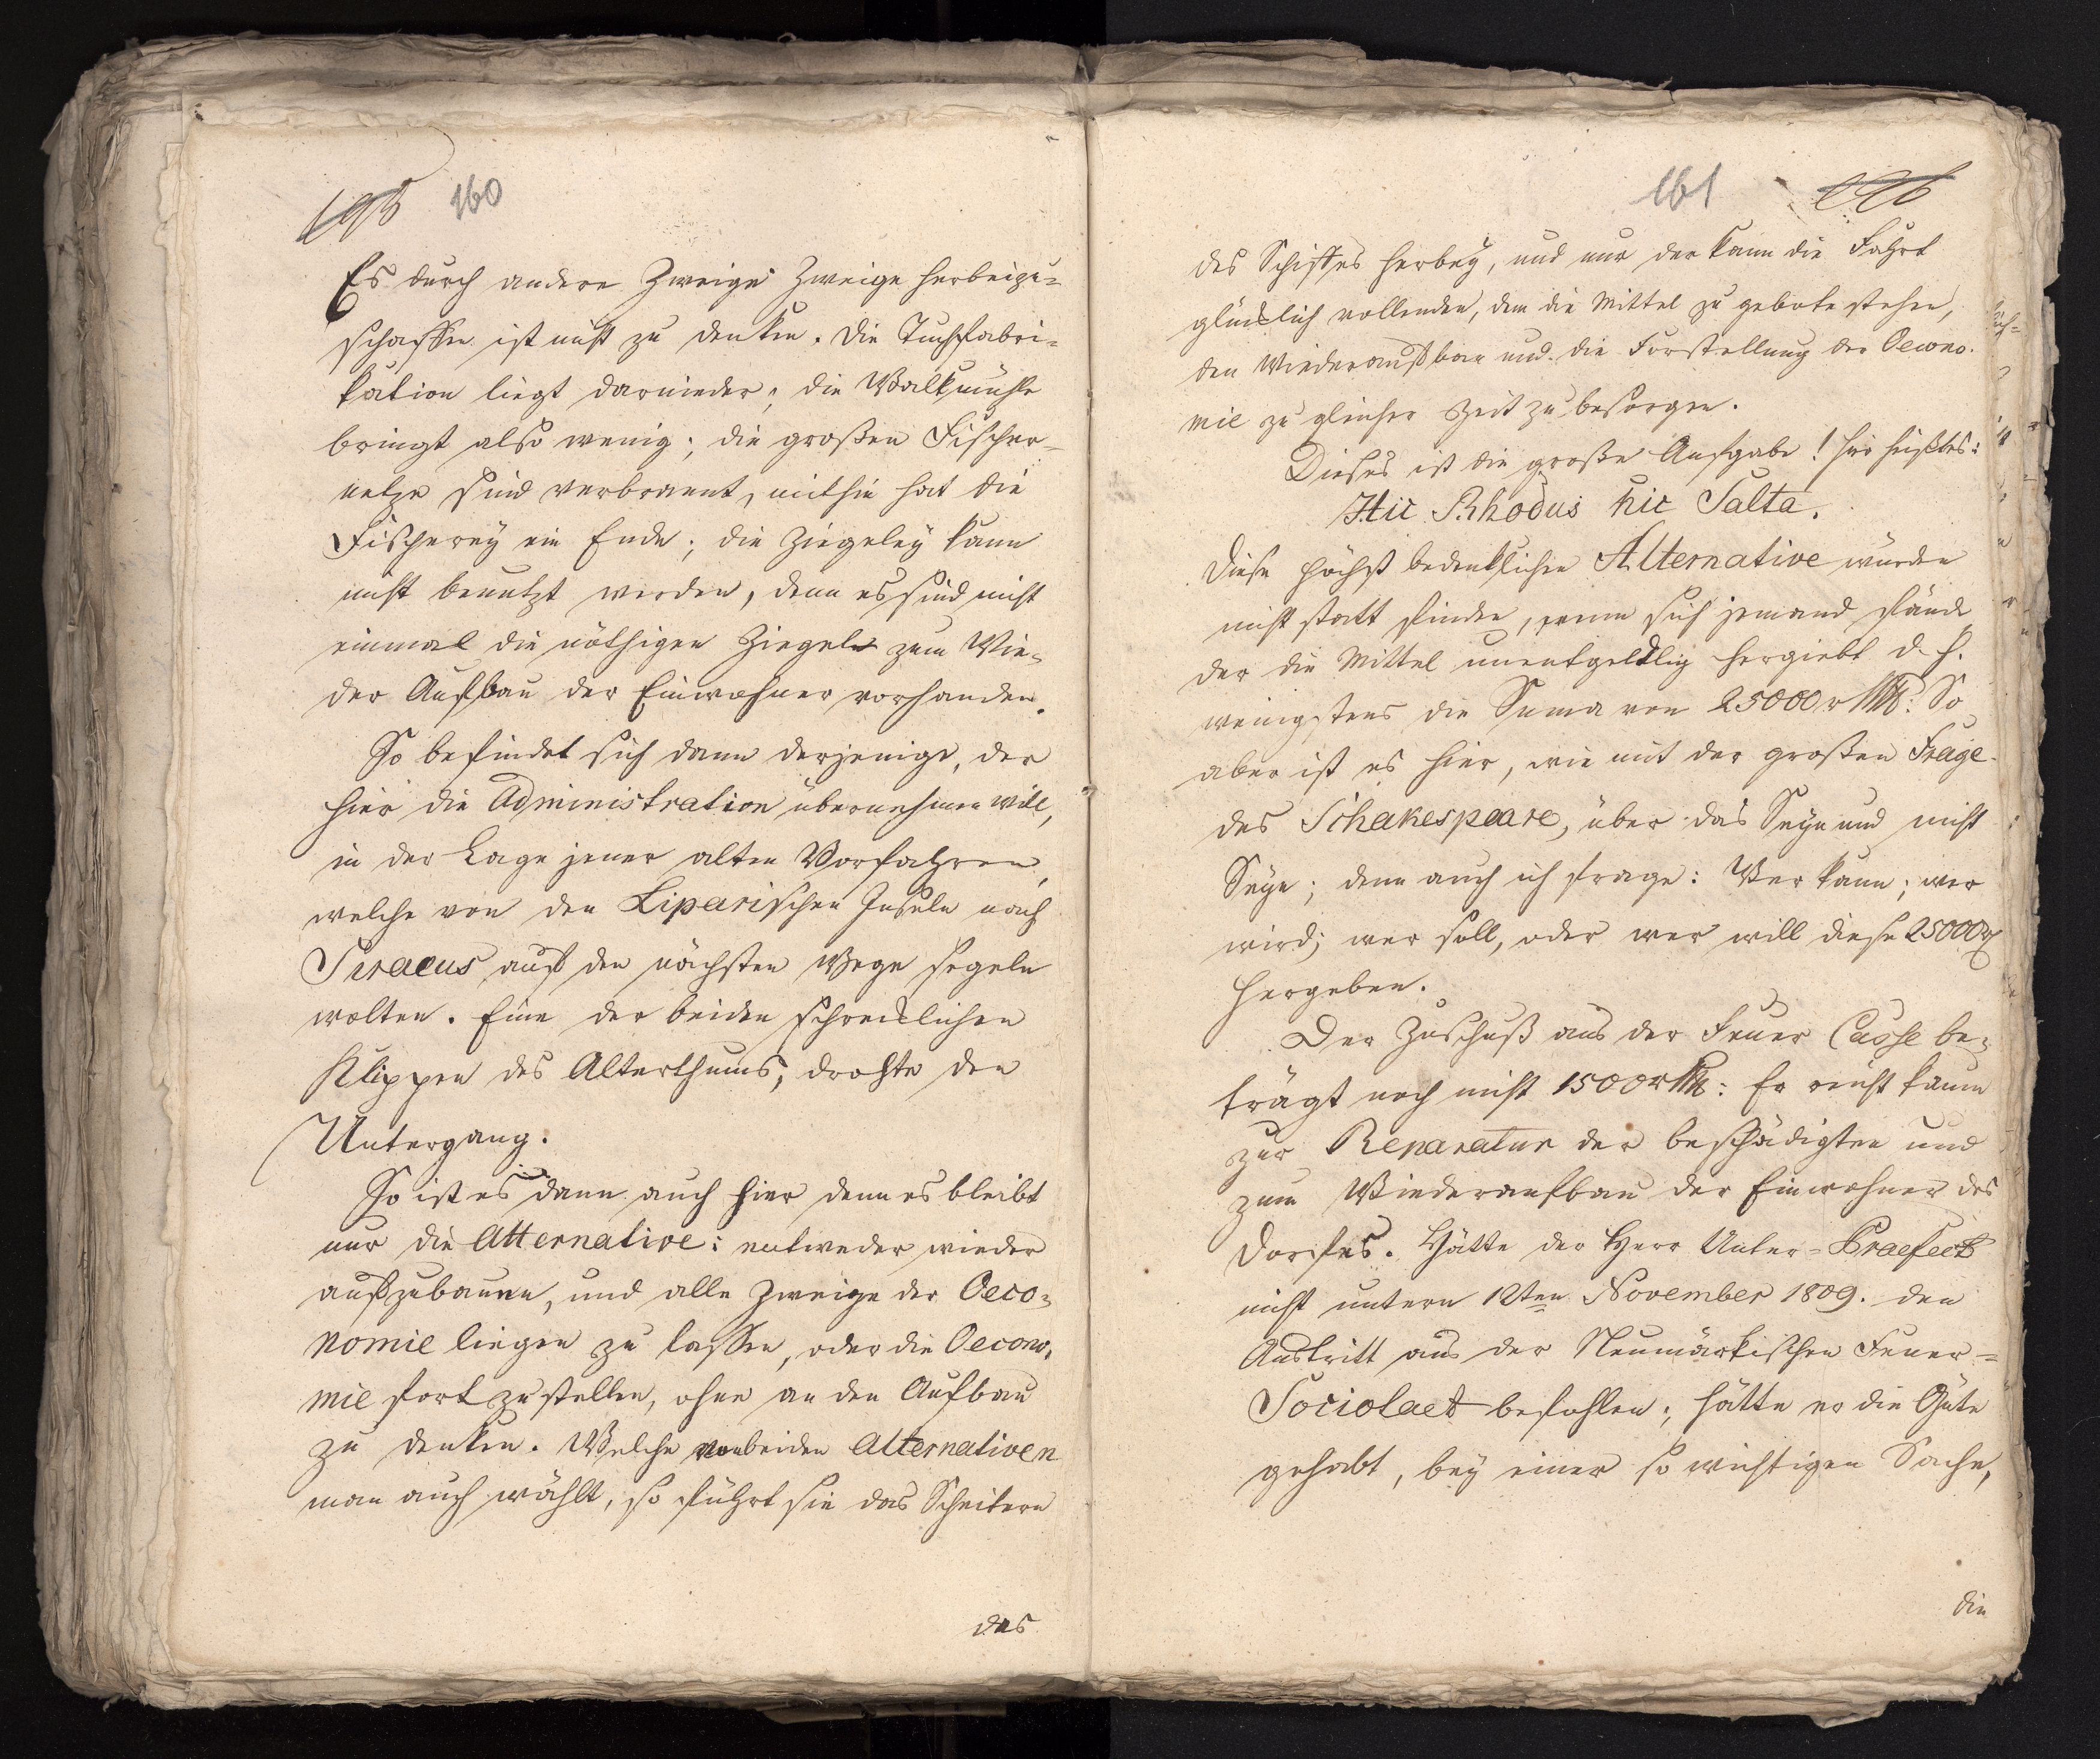 195 160
Es durch andere Zweige Zweige herbeizu-
schaffen ist nicht zu denken. Die Tuchfabri-
kation liegt darnieder; die Walkmühle
bringt also wenig; die großen Fischer-
netze sind verbrannt, mithin hat die
Fischerey ein Ende; die Ziegeley kann
nicht benutzt werden, denn es sind nicht
einmal die nöthigen Ziegeln zum Wie-
der Aufbau der Einwohner vorhanden.
So befindet sich dann derjenige, der
hier die Administration übernehmen will,
in der Lage jener alten Vorfahren,
welche von den Liparischen Inseln nach
Siracus auf den nächsten Wege segeln
wolten. Eine der beiden schrecklichen
Klippen des Alterthums, drohte den
Untergang.
So ist es dann auch hier denn es bleibt
nur die Alternative: entweder wieder
aufzubauen, und alle Zweige der Oeco-
nomie liegen zu lassen, oder die Oecono-
mie fortzustellen, ohne an den Aufbau
zu denken. Welche von beiden Alternativen
man auch wählt, so führt sie das Scheitern
des
161 196
des Schiffes herbey, und nur der kann die Fahrt
glücklich vollenden, dem die Mittel zu gebote stehen,
den Wiederaufbau und die Forstellung der Oecono-
mie zu gleicher Zeit zu besorgen.
Dieses ist die große Aufgabe! hier heißt es:
Hic Rhodus hic Salta.
Diese höchst bedenklichen Alternative würden
nicht statt finden, wenn sich jemand fände
der die Mittel unentgeldlig hergiebt d. h.
wenigstens die Suma von 25000 rthl: So
aber ist es hier, wie mit der großen Frage
des Schakespeare, über das Seyn und nicht
Seyn; denn auch ich frage: Wer kann; wer
wird; wer soll, oder wer will diese 25000 r
hergeben.
Der Zuschuß aus der Feuer Casse be-
trägt noch nicht 1500 rthl: Er reicht kaum
zur Reparatur der beschädigten und
zum Wiederaufbau der Einwohner des
Dorfes. Hätte der Herr Unter-Praefect
nicht untern 12ten November 1809. den
Austritt aus der Neumärkischen Feuer-
Sociolaet befohlen; hätte er die Güte
gehabt, bey einer so wichtigen Sache,
die